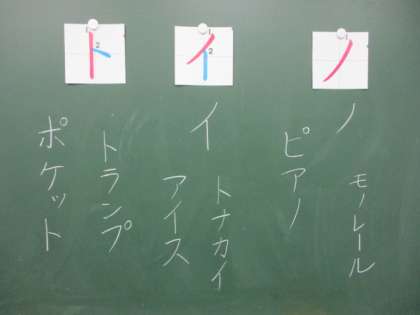 ノ
ノ
モノレール
ピアノ
イ
イ
トナカイ
アイス
ト
トランプ
ポケット